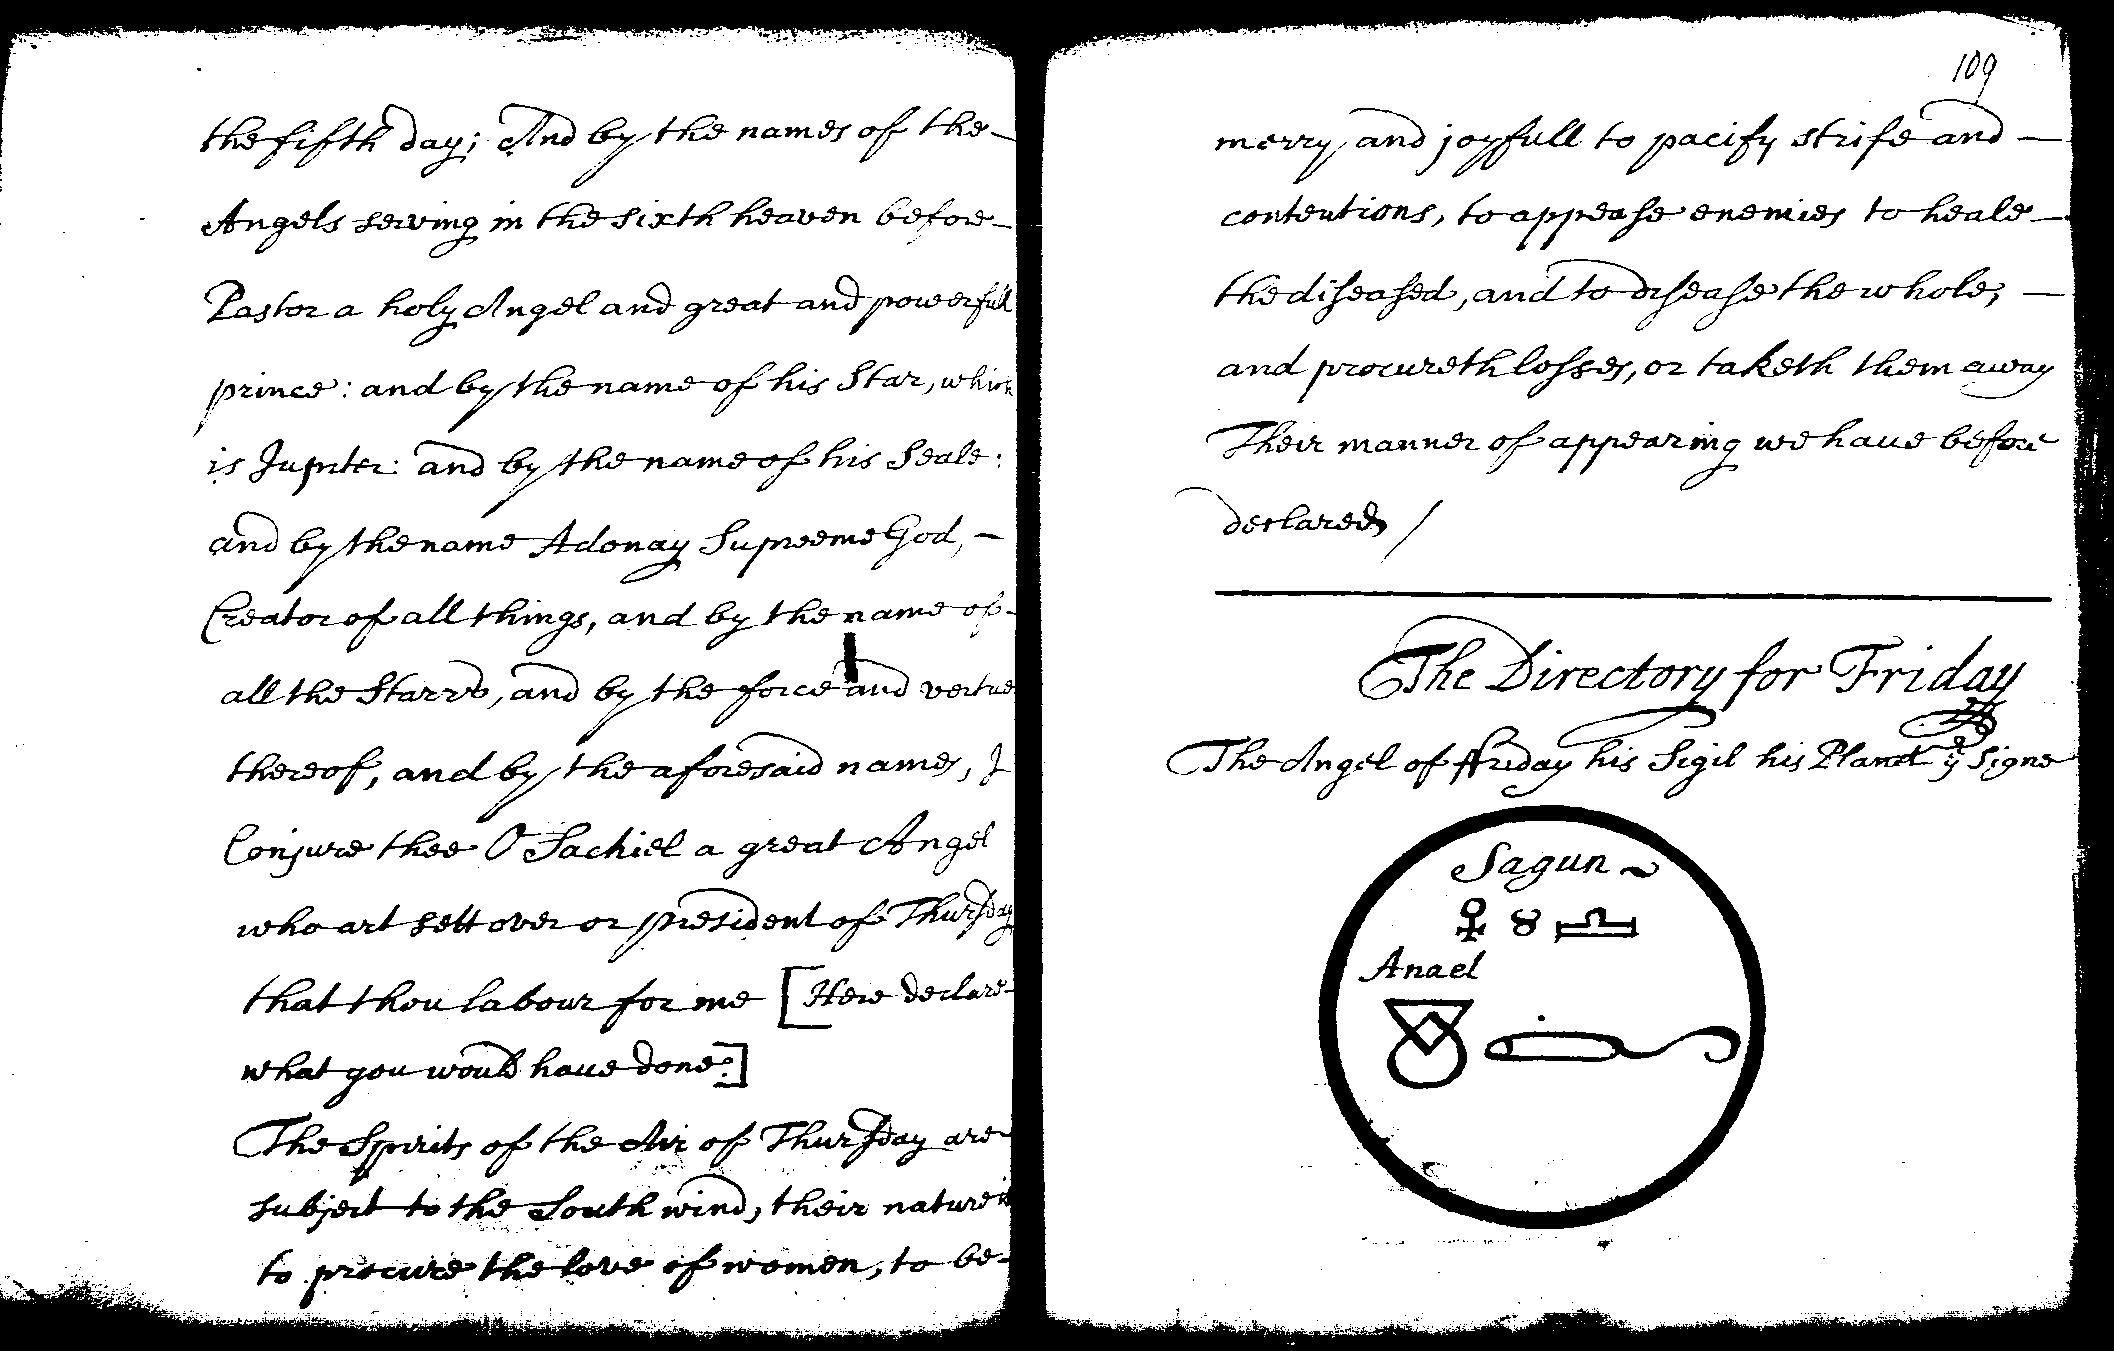 the fifth day; And by the names of the
Angels serving in the sixth heaven before
Pastor a holy Angel and great and powerfull
prince: and by the name of his Star, which
is Jupiter: and by the name of his Seale:
and by the name Adonay Supreeme God,
Creator of all things, and by the name of
all the Starrs, and by the force and vertue
thereof, and by the aforesaid names, I
Conjure thee O Sachiel a great Angel
who art sett over or president of Thursday
that thou labour for me [Here declare
what you would have done:]
The Spirits of the Air of Thursday are
subject to the South wind, their nature is
to procure the love of women, to be
109
merry and joyfull to pacify strife and
contentions, to appease enemies to heale
the diseased, and to disease the whole,
and procureth losses, or taketh them away
Their manner of appearing we have before
declared /
The Directory for Friday
The Angel of ffriday his Sigil his Planet yᵉ Signe
Sagun
♀ ♉ ♎
Anael